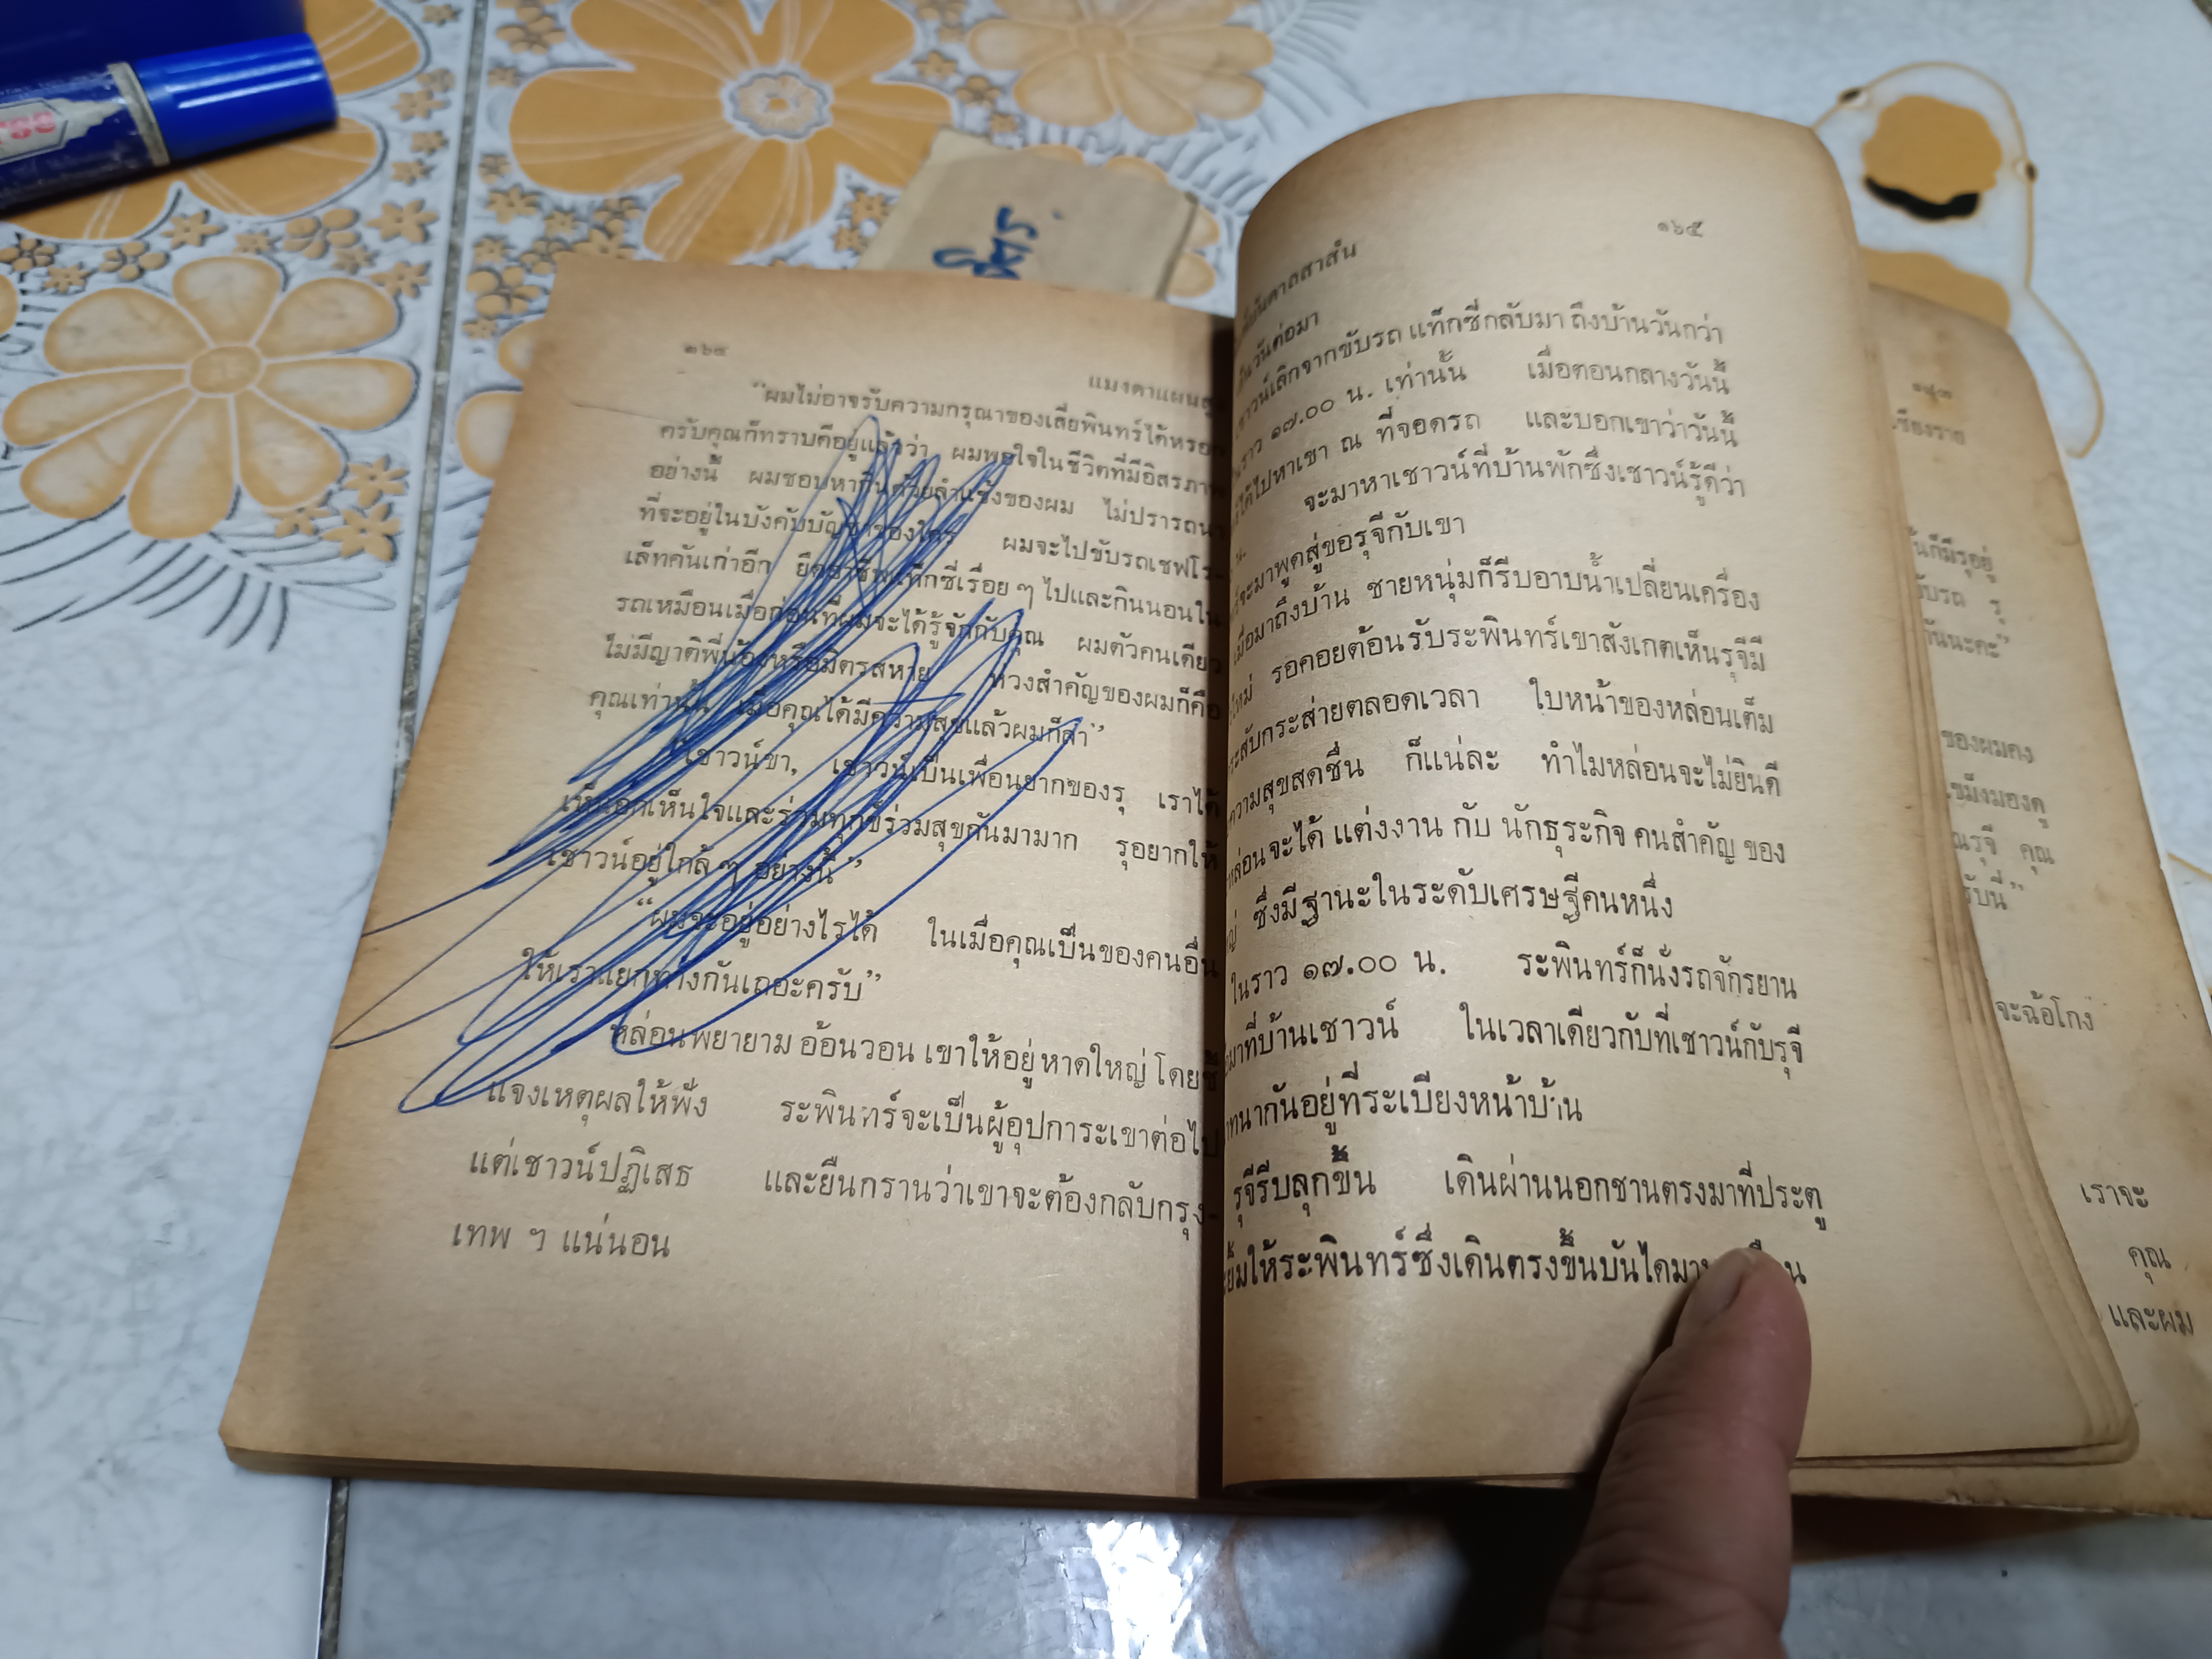 ๑๖๔
แมงดาแผน
“ผมไม่อาจรับความกรุณาของเสี่ยพินทร์ได้หรอก
ครับคุณก็ทราบดีอยู่แล้วว่า ผมพอใจในชีวิตที่มีอิสรภาพ
อย่างนี้ ผมชอบหากินด้วยลำแข้งของผม ไม่ปรารถนา
ที่จะอยู่ในบังคับบัญชาของใคร ผมจะไปขับรถเชฟโร-
เล็ทคันเก่าอีก ยึดอาชีพแท็กซี่เรื่อย ๆ ไปและกินนอนใน
รถเหมือนเมื่อก่อนที่ผมจะได้รู้จักกับคุณ ผมตัวคนเดียว
ไม่มีญาติพี่น้องหรือมิตรสหาย ห่วงสำคัญของผมก็คือ
คุณเท่านั้น เมื่อคุณได้มีความสุขแล้วผมก็ลา”
“เชาวน์ขา, เชาวน์เป็นเพื่อนยากของรุ เราได้
เห็นอกเห็นใจและร่วมทุกข์ร่วมสุขกันมามาก รุอยากให้
เชาวน์อยู่ใกล้ ๆ อย่างนี้”
“ผมจะอยู่อย่างไรได้ ในเมื่อคุณเป็นของคนอื่น
ให้เราแยกทางกันเถอะครับ”
หล่อนพยายาม อ้อนวอน เขาให้อยู่ หาดใหญ่ โดยชี้
แจงเหตุผลให้ฟัง ระพินทร์จะเป็นผู้อุปการะเขาต่อไป
แต่เชาวน์ปฏิเสธ และยืนกรานว่าเขาจะต้องกลับกรุง-
เทพ ฯ แน่นอน
๑๖๕
วันต่อมา
เชาวน์เลิกจากขับรถ แท็กซี่กลับมา ถึงบ้านวันกว่า
ราว ๑๗.๐๐ น. เท่านั้น เมื่อตอนกลางวันนี้
ได้ไปหาเขา ณ ที่จอดรถ และบอกเขาว่าวันนี้
น. จะมาหาเชาวน์ที่บ้านพักซึ่งเชาวน์รู้ดีว่า
จะมาพูดสู่ขอรุจีกับเขา
เมื่อมาถึงบ้าน ชายหนุ่มก็รีบอาบน้ำเปลี่ยนเครื่อง
ใหม่ รอคอยต้อนรับระพินทร์เขาสังเกตเห็นรุจีมี
กระสับกระส่ายตลอดเวลา ใบหน้าของหล่อนเต็ม
ความสุขสดชื่น ก็แน่ละ ทำไมหล่อนจะไม่ยินดี
หล่อนจะได้ แต่งงาน กับ นักธุระกิจ คนสำคัญ ของ
ซึ่งมีฐานะในระดับเศรษฐีคนหนึ่ง
ในราว ๑๗.๐๐ น. ระพินทร์ก็นั่งรถจักรยาน
มาที่บ้านเชาวน์ ในเวลาเดียวกับที่เชาวน์กับรุจี
ทนากันอยู่ที่ระเบียงหน้าบ้าน
รุจีรีบลุกขึ้น เดินผ่านนอกชานตรงมาที่ประตู
ยิ้มให้ระพินทร์ซึ่งเดินตรงขึ้นบันไดมา
เชียงราย
จะฉ้อโกง
เราจะ
คุณ
และผม